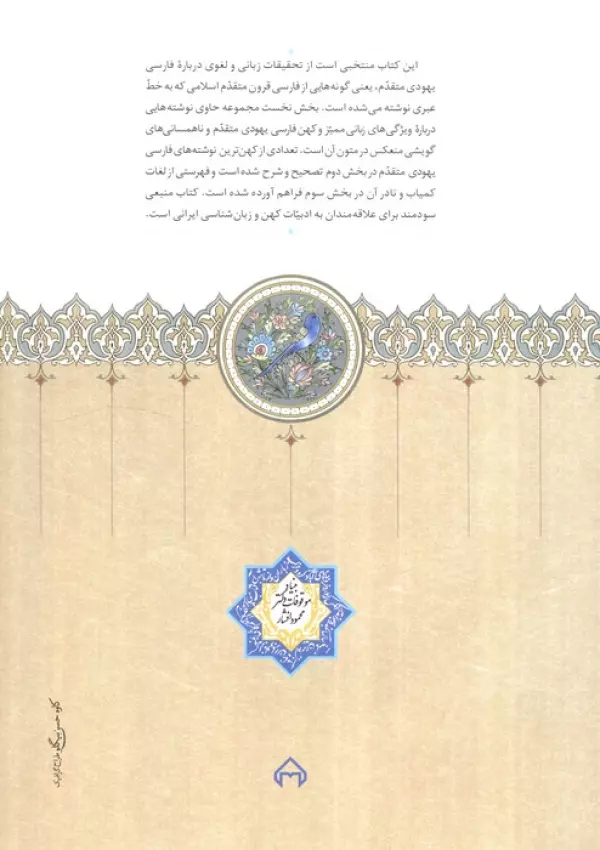 این کتاب منتخبی است از تحقیقات زبانی و لغوی دربارهٔ فارسی
یهودی متقدّم، یعنی گونه‌هایی از فارسی قرون متقدّم اسلامی که به خطّ
عبری نوشته می‌شده است. بخش نخست مجموعه حاوی نوشته‌هایی
دربارهٔ ویژگی‌های زبانی ممیّز و کهن فارسی یهودی متقدّم و ناهمسانی‌های
گویشی منعکس در متون آن است. تعدادی از کهن‌ترین نوشته‌های فارسی
یهودی متقدّم در بخش دوم تصحیح و شرح شده است و فهرستی از لغات
کمیاب و نادر آن در بخش سوم فراهم آورده شده است. کتاب منبعی
سودمند برای علاقه‌مندان به ادبیّات کهن و زبان‌شناسی ایرانی است.
بنیاد
موقوفات دکتر
محمود افشار